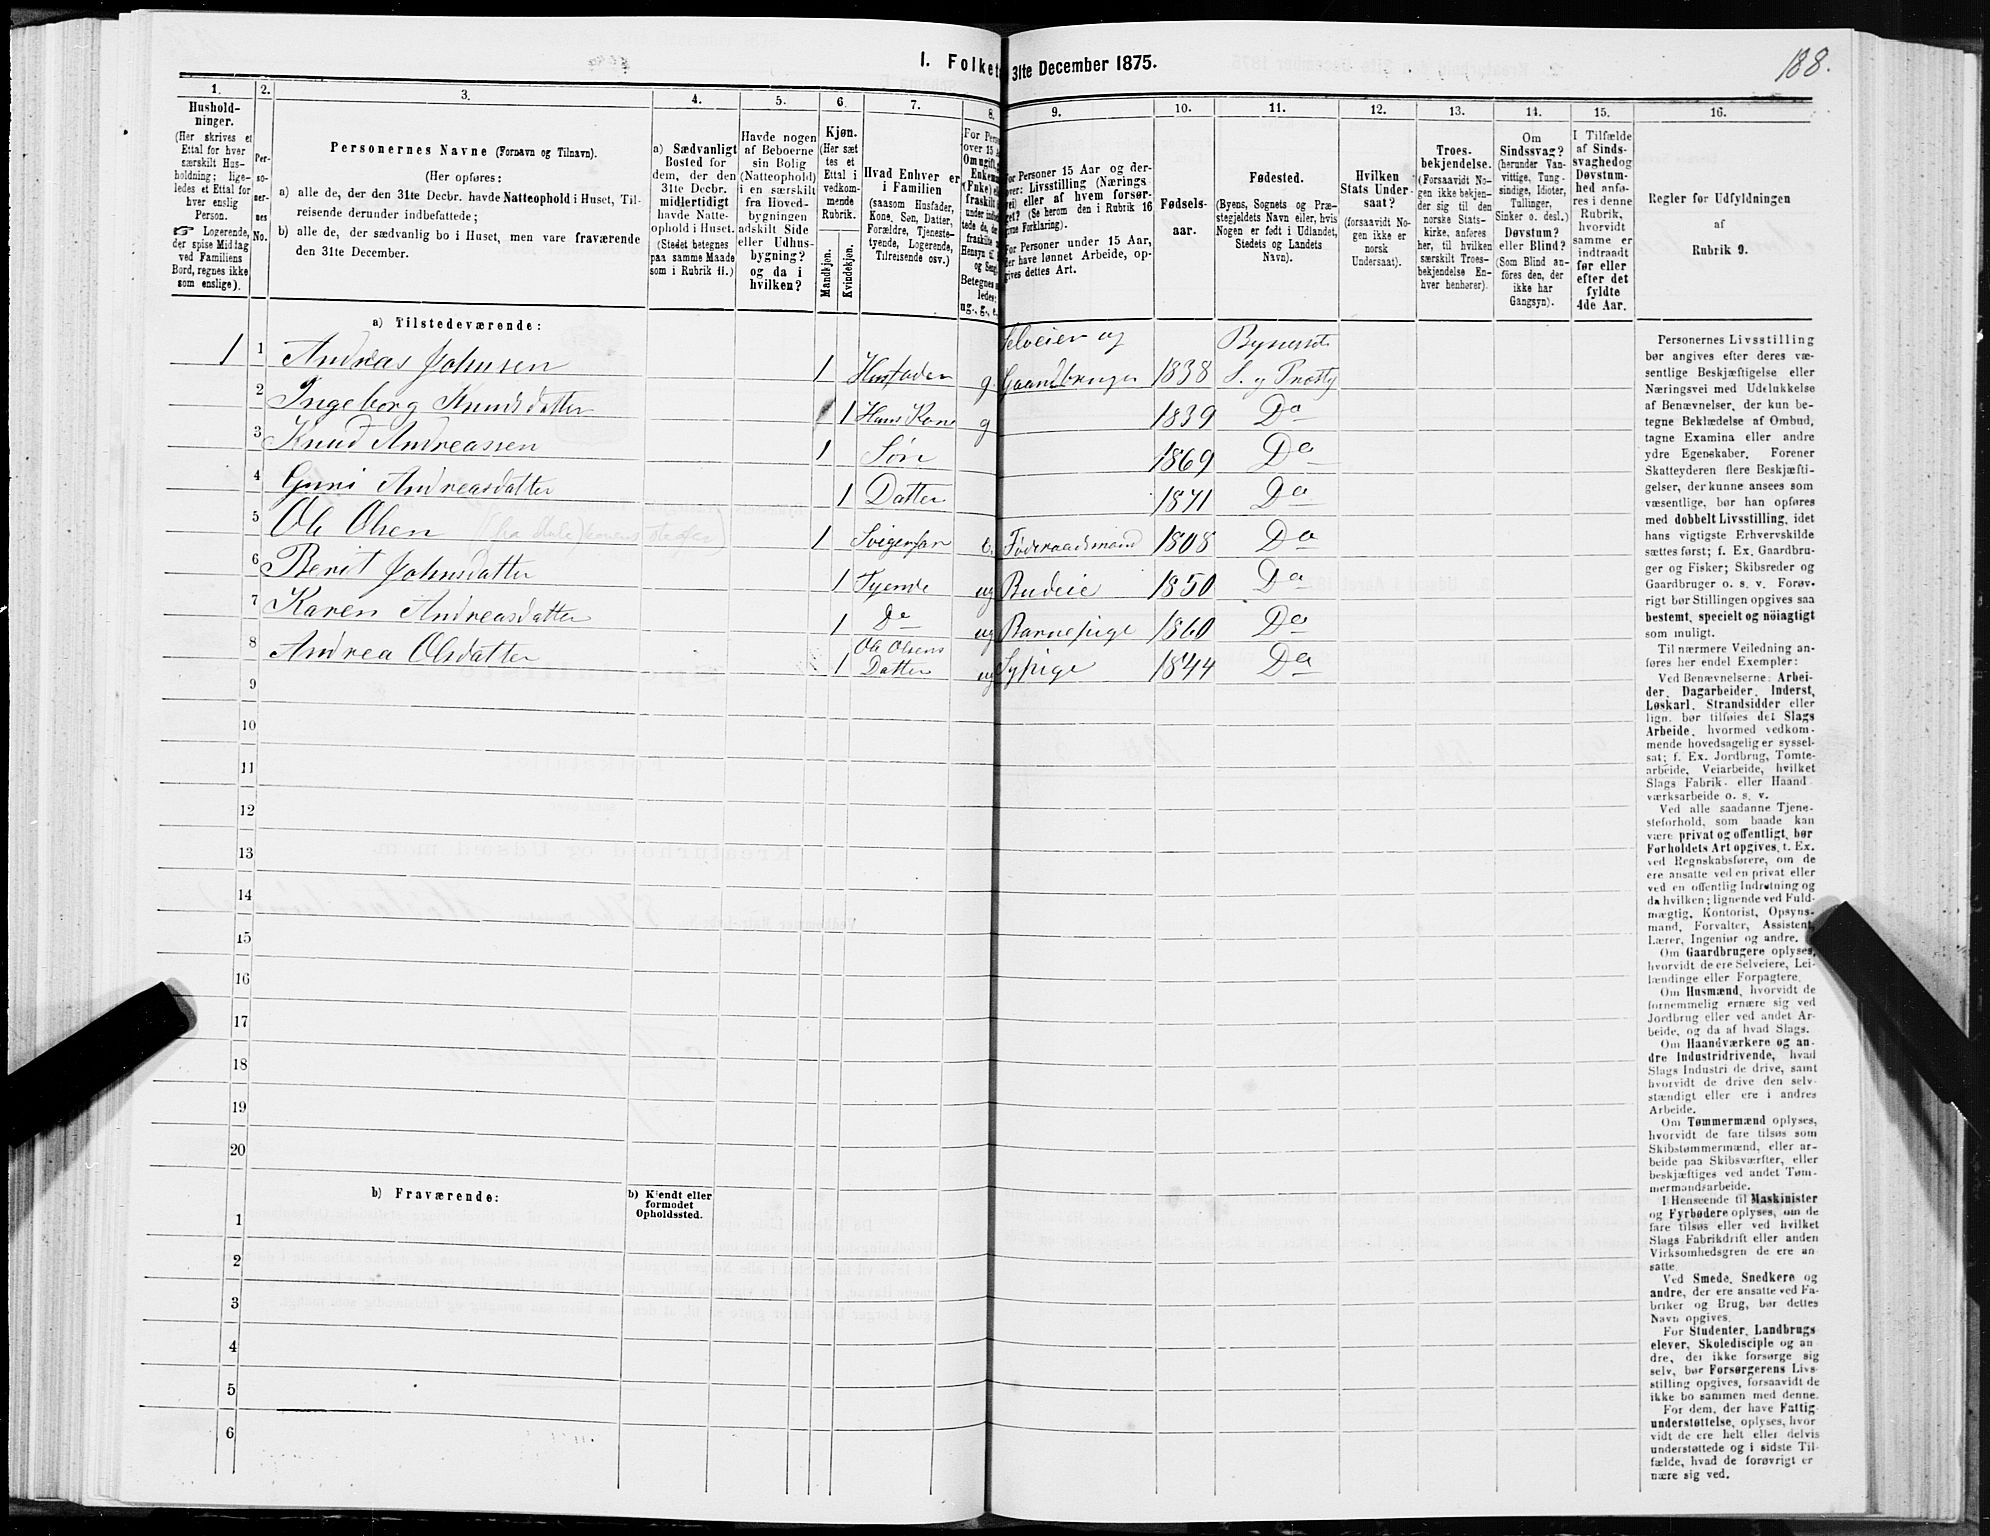 188.
1. Folket 31te December 1875.
1. 2. 3. 4. 5. 6. 7. 8. 9. 10. 11. 12. 13. 14. 15. 16.
Husholdninger.
(Her skrives et
Ettal for hver
særskilt Hus-
holdning; lige-
ledes et Ettal for
hver enslig
Person.
☞ Logerende,
der spise Middag
ved Familiens
Bord, regnes ikke
som enslige).
Per-
so-
ner-
nes
No.
Personernes Navne (Fornavn og Tilnavn).
(Her opføres:
a) alle de, der den 31te Decbr. havde Natteophold i Huset, Til-
reisende derunder indbefattede;
b) alle de, der sædvanlig bo i Huset, men vare fraværende
den 31te December.
a) Sædvanligt
Bosted for
dem, der den
31te Decbr.
midlertidigt
havde Natte-
ophold i Huset.
(Stedet betegnes
paa samme Maade
som i Rubrik 11.)
Havde nogen
af Beboerne
sin Bolig
(Natteophold)
i en særskilt
fra Hoved-
bygningen
adskilt Side
eller Udhus-
bygning?
og da i
hvilken?
Kjøn.
(Her sæt
tes et
Ettal i
vedkom-
mende
Rubrik.
Mandkjøn.
Kvindekjøn.
Hvad Enhver er
i Familien
(saasom Husfader,
Kone, Søn, Datter,
Forældre, Tjeneste-
tyende, Logerende,
Tilreisende osv.)
For Pers
over 15 A
Om ugift, g
Enkem
(Enke) e
fraskilt
Betegnes
ledes:
ug., g., e.
For Personer 15 Aar og der-
over: Livsstilling (Nærings
vei) eller af hvem forsør-
get? (Se herom den i Rubrik 16
givne Forklaring).
For Personer under 15 Aar,
der have lønnet Arbeide, op-
gives dettes Art.
Fødsels-
aar.
Fødested.
(Byens, Sognets og Præ-
stegjeldets Navn eller, hvis
Nogen er født i Udlandet,
Stedets og Landets
Navn).
Hvilken
Stats Under-
saat?
(forsaavidt No-
gen ikke er
norsk
Undersaat).
Troes-
bekjendelse.
(Forsaavidt No-
gen ikke bekjen-
der sig til den
norske Stats-
kirke, anføres
her, til hvilken
særskilt Troes-
bekjendelse En-
hver henhører).
Om
Sindssvag?
(herunder Van-
vittige, Tung-
sindige, Idioter,
Tullinger,
Sinker o. desl.)
Døvstum?
eller Blind?
(Som Blind an-
føres den, der
ikke har
Gangsyn).
I Tilfælde
af Sinds-
svaghed og
Døvstum-
hed anfø-
res i denne
Rubrik,
hvorvidt
samme er
indtraadt
før eller
efter det
fyldte
4de Aar.
Regler for Udfyldningen
af
Rubrik 9.
a) Tilstedeværende:
1 1 Andreas Johnsen 1 Husfader g Selveier og Gaardbruger 1838 Bynæsets S. og Præstg
2 Ingeborg Knudsdatter 1 Hans Kone g 1839 Do
3 Knud Andreassen 1 Søn 1869 Do
4 Guri Andreasdatter 1 Datter 1871 Do
5 Ole Olsen 1 Svigerfar e. Føderaadsmand 1808 Do
6 Berit Johnsdatter 1 Tyende ug Budeie 1850 Do
7 Karen Andreasdatter 1 Do ug Barnepige 1860 Do
8 Andrea Olsdatter 1 Ole Olsens Datter ug Sypige 1844 Do
9
10
11
12
13
14
15
16
17
18
19
20
b) Fraværende:
b) Kjendt eller
formodet
Opholdssted.
1
2
3
4
5
6
Personernes Livsstilling
bør angives efter deres væ-
sentlige Beskjæftigelse eller
Næringsvei med Udelukkelse
af Benævnelser, der kun be-
tegne Beklædelse af Ombud,
tagne Examina eller andre
ydre Egenskaber. Forener
Skatteyderen flere Beskjæfti-
gelser, der kunne ansees som
væsentlige, bør han opføres
med dobbelt Livsstilling, idet
hans vigtigste Erhvervskilde
sættes først; f. Ex. Gaardbru-
ger og Fisker; Skibsreder og
Gaardbruger o. s. v. Forøv-
rigt bør Stillingen opgives saa
bestemt, specielt og nöiagtigt
som muligt.
Til nærmere Veiledning an-
føres her endel Exempler:
Ved Benævnelserne: Arbei-
der, Dagarbeider, Inderst,
Løskarl, Strandsidder eller
lign. bør tilføies det Slags
Arbeide, hvormed vedkom-
mende hovedsagelig er syssel-
sat; f. Ex. Jordbrug, Tomte-
arbeide, Veiarbeide, hvilket
Slags Fabrik- eller Haand
værksarbeide o. s. v.
Ved alle saadanne Tjene-
steforhold, som baade kan
være privat og offentligt, bør
Forholdets Art opgives, t. Ex.
ved Regnskabsførere, om de
ere ansatte ved en privat eller
ved en offentlig Indretning og
da hvilken; lignende ved Fuld-
mægtig, Kontorist, Opsyns-
mand, Forvalter, Assistent,
Lærer, Ingeniør og andre.
Om Gaardbrugere oplyses,
hvorvidt de ere Selveiere, Lei-
lændinge eller Forpagtere.
Om Husmænd, hvorvidt de
fornemmelig ernære sig ved
Jordbrug eller ved andet Ar-
beide, og da af hvad Slags.
Om Haandværkere og an-
dre Industridrivende, hvad
Slags Industri de drive, samt
hvorvidt de drive den selv-
stændigt eller ere i andres
Arbeide.
Om Tømmermænd oplyses,
hvorvidt de fare tilsøs som
Skibstømmermænd, eller ar-
beide paa Skibsværfter, eller
beskjæftiges ved andet Tøm-
mermandsarbeide.
I Henseende til Maskinister
og Fyrbødere oplyses, om de
fare tilsøs eller ved hvilket
Slags Fabrikdrift eller anden
Virksomhedsgren de ere an-
satte.
Ved Smede, Snedkere og
andre, der ere ansatte ved Fa-
briker og Brug, bør dettes
Navn opgives.
For Studenter, Landbrugs
elever, Skoledisciple og an
dre, der ikke forsørge sig
selv, bør Forsørgerens Livs-
stilling opgives, forsaavidt de
ikke bo sammen med denne.
For dem, der have Fattig
understøttelse, oplyses, hvor
vidt de ere helt eller delvis
understøttede og i sidste Til-
fælde, hvad de forøvrigt er
nære sig ved.